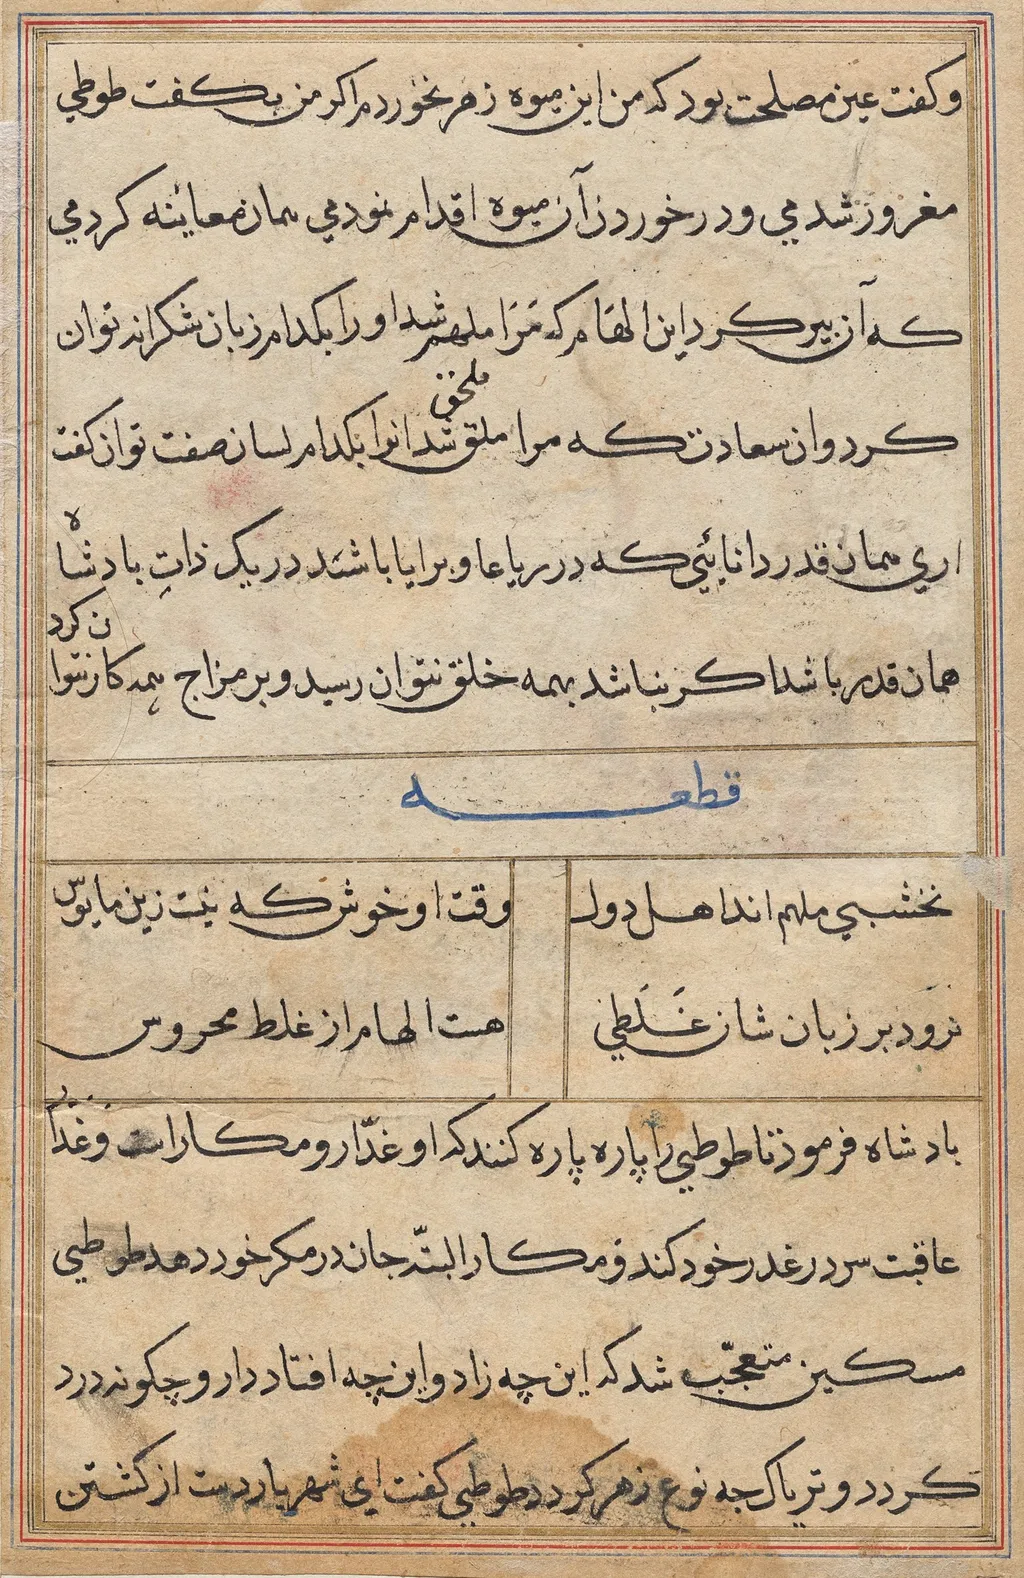 و کفت عین مصلحت بود که من این میوه زهر نخوردم اکر من بکفت طوطي
مغرور شدمي و در خوردن آن میوه اقدام نمودمي همان معاینه کردمي
که آن پیر کرد این الهام که مَرَا ملهم شد او را بکدام زبان شکرانه توان
کرد وان سعادت که مرا ملحق شد انرا بکدام لسان صفت توان کفت
اري همان قدر دانایئي که در رعایا و برایا باشد در یک ذاتِ بادشاه
همان قدر باشد اکر نباشد بهمه خلق نتوان رسید و بر مزاج همه کار نتوان کرد
قطعه
نخشبي ملهم اند اهل دول
وقت او خوش که نیت زین مایوس
نرود بر زبان شان غَلَطي
هست الهام از غلط محروس
بادشاه فرمود تا طوطي را پاره پاره کنند که او غدّار و مکار است و غدّار
عاقبت سر در غدر خود کند و مکار البتّه جان در مکر خود دهد طوطي
مسکین متعجّب شد که این چه زاد و این چه افتاد دارو چکونه درد
کردد و تریاک چه نوع زهر کردد طوطي کفت اي شهریار دست از کشتن